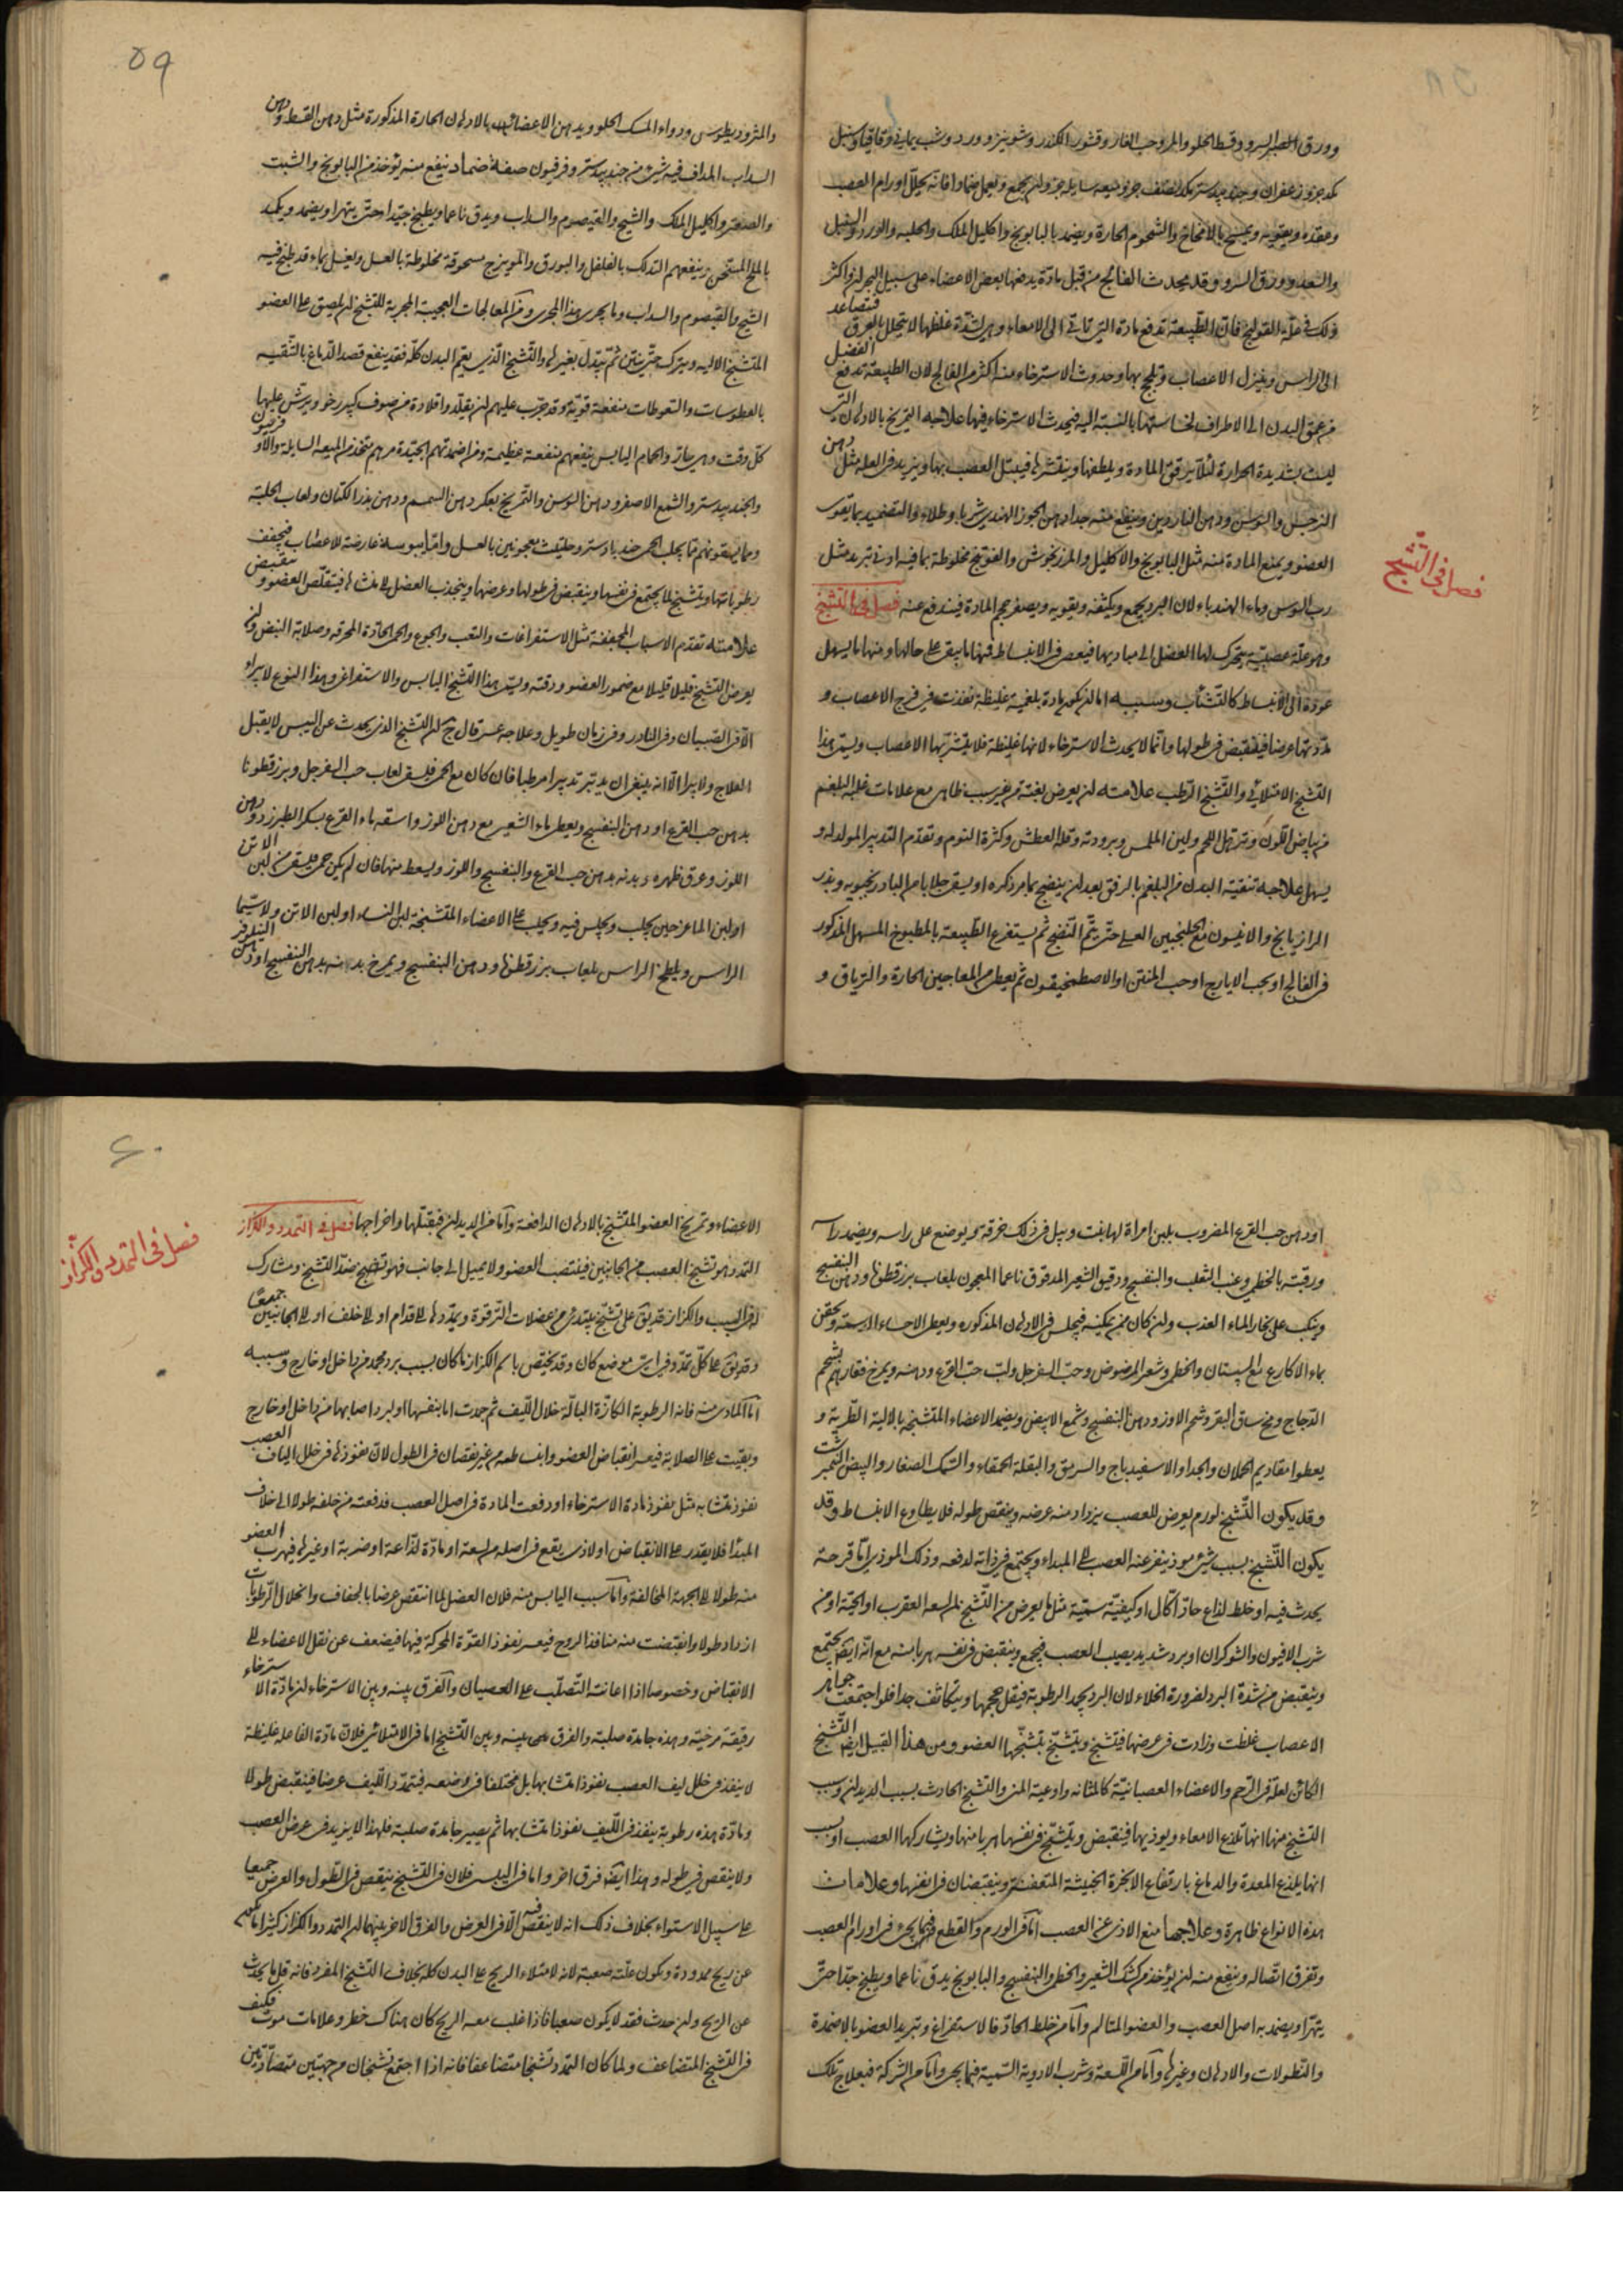 وورق السرو وقسط الحلو والمر وحب الغار وقشور الكندر وشونيز وورد وشب يماني وقاقيا وسنبل
وعقده ويقويه ويمسح بالامخاخ والشحوم الحارة ويضمد بالبابونج واكليل الملك والحلبه والورد والسنبل
والسعد وورق السرو وقد يحدث الفالج من قبل مادة يدفعها بعض الاعضاء على سبيل البحران واكثر
ذلك في علة القولنج فان الطبيعة تدفع مادة التي تاتي الى الامعاء وهي لشدة غلظها لا يتحلل بالعرق فتصاعد
الى الراس وينزل الاعصاب وحدوث الاسترخاء منه اكثر من الفالج لان الطبيعة تدفع الفضل
من عمق البدن الى الاطراف لخساستها بالنسبة اليه فيحدث الاسترخاء فيها علاجه التمريخ بالادهان التي
ليست بشديدة الحرارة لئلا يرقق المادة ويلطفها وينشرها فيبتل العصب بها ويزيد في العلة مثل دهن
النرجس والسوسن ودهن الناردين وينفع منه جدا دهن الجوز الهندي شربا وطلاء والتضميد بما يقوي
العضو ويمنع المادة منه مثل البابونج والاكليل والمرزنجوش والفوتنج مخلوطة بما فيه ادنى تبريد مثل
رب السوس وماء الهندباء لان البرد يجمع ويكثفه ويقويه ويصغر حجم المادة فيندفع عنه فصل في التشنج
فصل في التشنج
وهو علة عصبية يتحرك لها العضل الى مباديها فيعصي في الانبساط فمنها ما يبقى على حالها ومنها ما يسهل
عوده الى الانبساط كالتثاؤب وسببه اما ان يكون مادة بلغمية غليظة نفذت في فرج الاعصاب و
مددتها عرضا فينقبض في طولها وانما لا يحدث الاسترخاء لانها غليظة فلا يتشربها الاعصاب ويسمى هذا
التشنج الامتلائي والتشنج الرطب علامته ان يعرض بغتة من غير سبب ظاهر مع علامات غلبة البلغم
من بياض اللون وترهل اللحم ولين الملمس وبرودته وقلة العطش وكثرة النوم وتقدم التدبير المولد له و
يسهل علاجه تنقية البدن من البلغم بالرفق بعد ان ينضج بما مر ذكره او يسقى جلابا من البادرنجبويه وبذر
الرازيانج والانيسون مع الجلنجبين العسلي حتى يتم النضج ثم يستفرغ الطبيعة بالمطبوخ المسهل المذكور
في الفالج او بحب الايارج او حب المنتن او الاصطمخيقون ثم يعطى من المعاجين الحارة والترياق و
٥٩
والمثروديطوس ودواء المسك الحلو ويدهن الاعضاء بالادهان الحارة المذكورة مثل دهن القسط ودهن
السداب المداف فيه شيء من جندبيدستر وفرفيون صفة ضماد ينفع منه يؤخذ من البابونج والشبت
والصعتر واكليل الملك والشيح والقيصوم والسداب ويدق ناعما ويطبخ جيدا حتى يتهرا ويضمد ويكمد
بالملح المسخن وينفعهم التدلك بالفلفل والبورق والمويزج مسحوقة مخلوطة بالعسل ويغسل بماء قد طبخ فيه
الشيح والقيصوم والسداب وما يجري هذا المجرى ومن المعالجات العجيبة المجربة للتشنج ان يلصق على العضو
المتشنج الالية ويترك حتى ينتن ثم يبدل بغيرها والتشنج الذي يعم البدن كله فقد ينفع قصد الدماغ بالتنقيه
بالعطوسات والسعوطات منفعة قوية وقد جرب عليهم ان يقلدوا قلادة من صوف كبير رخو ويرش عليها
كل وقت دهن حار والحمام اليابس ينفعهم منفعة عظيمة ومن اضمدتهم الجيدة مرهم يتخذ من الميعة السايلة والاوفربيون
والجندبيدستر والشمع الاصفر ودهن السوسن والتمريخ بعكر دهن السمسم ودهن بذر الكتان ولعاب الحلبة
علامته تقدم الاسباب المجففة مثل الاستفراغات والتعب والجوع والحمى الحادة المحرقة وصلابة النبض وان
يعرض التشنج قليلا قليلا مع ضمور العضو ودقته ويسمى هذا التشنج اليابس والاستفراغي وهذا النوع لا يبراء
الا في الصبيان وفي النادر وفي زمان طويل وعلاجه عسر قال ج ان التشنج الذي يحدث عن اليبس لا يقبل
العلاج ولا يبرا الا انه ينبغي ان يدبر تدبيرا مرطبا فان كان مع الحمى فليسقى لعاب حب السفرجل وبزرقطونا
بدهن حب القرع او دهن البنفسج ويعطى ماء الشعير مع دهن اللوز واسقه ماء القرع بسكر الطبرزد ودهن
اللوز وعرق ظهره وبدنه بدهن حب القرع والبنفسج واللوز ويسعط منها فان لم يكن حمى فليسقى من لبن الاتن
او لبن الماعز حين يحلب ويجلس فيه ويحلب على الاعضاء المتشنجة لبن النساء او لبن الاتن ولا سيما
الراس ويلطخ الراس بلعاب بزرقطونا ودهن البنفسج ويمرخ بدنه بدهن البنفسج او دهن النيلوفر
او دهن حب القرع المضروب بلبن امراة لها بنت ويبل في ذلك خرقة حرير يوضع على راسه ويضمد راسه
ورقبته بالخطمي وعنب الثعلب والبنفسج ودقيق الشعير المدقوق ناعما المعجون بلعاب بزرقطونا ودهن البنفسج
وينكب على بخار الماء العذب وان كان ممن يمكنه فيجلس في الادهان المذكوره ويعطى الاحساء الدسمة ويحقن
بماء الاكارع مع السبستان والخطمي وشعير المرضوض وحب السفرجل ولب حب القرع ودهنه ويمرخ فقارهم بشحم
الدجاج ومخ ساق البقر وشحم الاوز ودهن البنفسج وشمع الابيض ويضمد الاعضاء المتشنجة بالالية الطرية و
يعطوا مقاديم الحملان والجدا والاسفيدباج والسرمق والبقلة الحمقاء والسمك الصغار والبيض النيمبرشت
وقد يكون التشنج لورم يعرض للعصب يزداد منه عرضه وينقص طوله فلا يطاوع الانبساط وقد
يكون التشنج بسبب شيء موذ ينفر عنه العصب الى المبداء ويجتمع في ذاته لدفعه وذلك الموذي اما قرحة
يحدث فيه او خلط لذاع حاد اكال او كيفية سمية مثل ما يعرض من التشنج لمن لسعه العقرب او الحية او من
شرب الافيون والشوكران او برد شديد يصيب العصب فيجمع وينقبض في نفسه هربا منه مع انه ايضا يجتمع
وينقبض من شدة البرد لضرورة الخلاء لان البرد يجمد الرطوبة فيقل حجمها ويتكاثف جدا فلو اجتمعت جواهر
الاعصاب غلظت وزادت في عرضها فيتشنج ويتشنج بتشنجها العضو ومن هذا القبيل ايضا التشنج
الكائن لعلة في الرحم والاعضاء العصبانية كالمثانة واوعية المني والتشنج الحادث بسبب الديدان وسبب
التشنج منها انها تلذع الامعاء ويوذيها فينقبض ويتشنج في نفسها هربا منها ويشاركها العصب او بسبب
انها يلذع المعدة والدماغ بارتفاع الابخرة الخبيثة المتعفنة وينقبضان في انفسها وعلامات
هذه الانواع ظاهرة وعلاجها منع الاذى عن العصب اما في الورم والقطع فبما يجيء في اورام العصب
وتفرق اتصاله وينفع منه ان يؤخذ من كشك الشعير والخطمي والبنفسج والبابونج يدق ناعما ويطبخ جدا حتى
يتهرا ويضمد به اصل العصب والعضو المتالم واما من خلط الحاد فالاستفراغ وتبريد العضو بالاضمدة
والنطولات والادهان وغيرها واما من اللسعة وشرب الادوية السمية فبما يجيء واما من الشركة فبعلاج تلك
٦٠
الاعضاء وتمريخ العضو المتشنج بالادهان الدافعة واما من الديدان فبقتلها واخراجها فصل في التمدد والكزاز
فصل في التمدد والكزاز
التمدد هو تشنج العصب من الجانبين فينتصب العضو ولا يميل الى جانب فهو تشنج ضد التشنج ومشارك
له في السبب والكزاز قد يق على تشنج يبتدي من عضلات الترقوة ويمددها الى قدام او الى خلف او الى الجانبين جميعا
وقد يق على كل تمدد في اي موضع كان وقد يختص باسم الكزاز ما كان بسبب برد مجمد من داخل او خارج وسببه
اما المادي منه فانه الرطوبة الكازة البالة خلال الليف ثم جمدت اما بنفسها او لبرد اصابها من داخل او خارج
وبقيت على الصلابة فيعسر انقباض العضو وانبساطه من غير نقصان في الطول لان نفوذها في خلل الياف العصب
نفوذ متشابه مثل نفوذ مادة الاسترخاء او دفعت المادة في اصل العصب فدفعته من خلفه طولا الى خلاف
المبدا فلا يقدر على الانقباض او لاذى يقع في اصله من لسعة او مادة لذاعة او ضربة او غيرها فيهرب العضو
منه طولا الى الجهة المخالفة واما سبب اليابس منه فلان العضل لما انتقص عرضا بالجفاف وانحلال الرطوبات
ازداد طولا وانقبضت منه منافذ الروح فيعسر نفوذ القوة المحركة فيها فيضعف عن نقل الاعضاء الى
الانقباض وخصوصا اذا اعانته التصلب على العصيان والفرق بينه وبين الاسترخاء ان مادة الاسترخاء
رقيقة مرخية وهذه جامدة صلبة والفرق بينه وبين التشنج اما في الامتلائي فلان مادة الفاعلة غليظة
لا ينفذ في خلل ليف العصب نفوذا متشابها بل مختلفا في وضعه فيتمدد الليف عرضا فينقبض طولا
ومادة هذه رطوبة ينفذ في الليف نفوذا متشابها ثم يصير جامدة صلبة فلهذا لا يزيد في عرض العصب
ولا ينقص في طوله وهذا ايضا فرق اخر واما في اليابس فلان في التشنج ينقص في الطول والعرض جميعا
على سبيل الاستواء بخلاف ذلك انه لا ينقص فيه الا في العرض والفرق الاخر بينهما ان التمدد والكزاز كثيرا ما يكون
عن ريح ممدودة ويكون علته صعبة لانه لامتلاء الريح على البدن كله بخلاف التشنج المفرد فانه قل ما يحدث
عن الريح وان حدث فقد لا يكون صعبا فاذا غلب معه الريح كان هناك خطر وعلامات موت فكيف
في التشنج المتضاعف ولما كان التمدد تشنجا متضاعفا فانه اذا اجتمع تشنجان من جهتين متضادتين